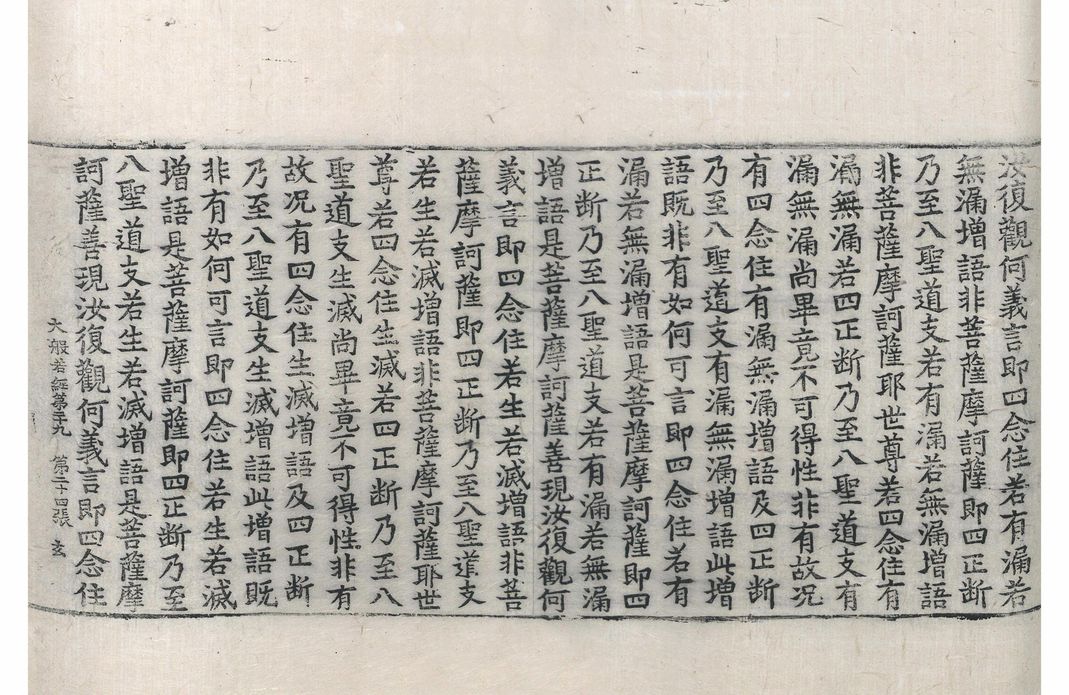 汝復觀何義言即四念住若有漏若
無漏增語非菩薩摩訶薩即四正断
乃至八聖道支若有漏若無漏增語
非菩薩摩訶薩耶世尊若四念住有
漏無漏若四正断乃至八聖道支有
漏無漏尚畢竟不可得性非有故况
有四念住有漏無漏增語及四正断
乃至八聖道支有漏無漏增語此增
語既非有如何可言即四念住若有
漏若無漏增語是菩薩摩訶薩即四
正断乃至八聖道支若有漏若無漏
增語是菩薩摩訶薩善現汝復觀何
義言即四念住若生若滅增語非菩
薩摩訶薩即四正断乃至八聖道支
若生若滅增語非菩薩摩訶薩耶世
尊若四念住生滅若四正断乃至八
聖道支生滅尚畢竟不可得性非有
故况有四念住生滅增語及四正断
乃至八聖道支生滅增語此增語既
非有如何可言即四念住若生若滅
增語是菩薩摩訶薩即四正断乃至
八聖道支若生若滅增語是菩薩摩
訶薩善現汝復觀何義言即四念住
大般若經第三十九 第二十四張 玄